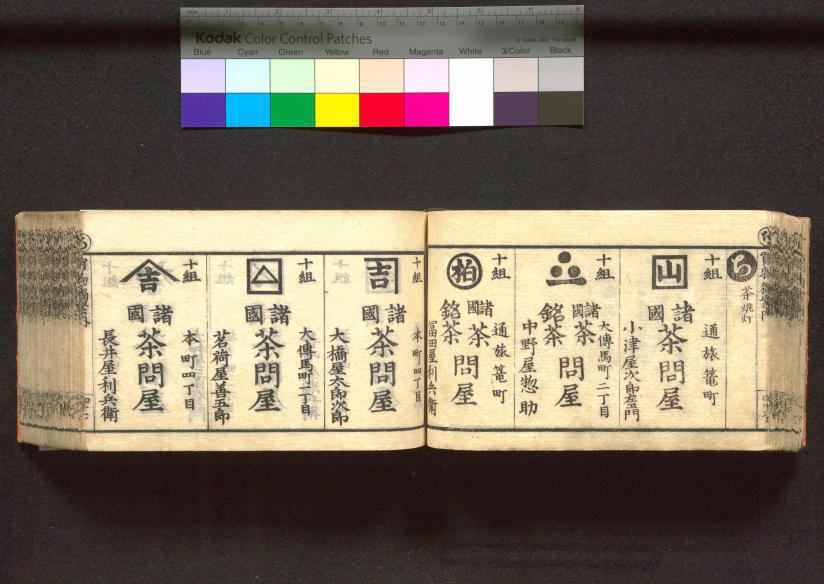 Kodak Color Control Patches
Blue Cyan Green Yellow Red Magenta White 3/Color Black
ち
茶
山
十組
通旅篭町
諸國
茶問屋
小津屋次郎左衛門
十組
大傳馬町二丁目
諸國
銘茶
茶問屋
中野屋惣助
柏
十組
通旅篭町
諸國
銘茶
茶問屋
冨田屋利兵衛
吉
十組
本町四丁目
諸國
茶問屋
大橋屋太郎次郎
十組
大傳馬町二丁目
諸國
茶問屋
茗荷屋善五郎
吉
十組
本町四丁目
諸國
茶問屋
長井屋利兵衛